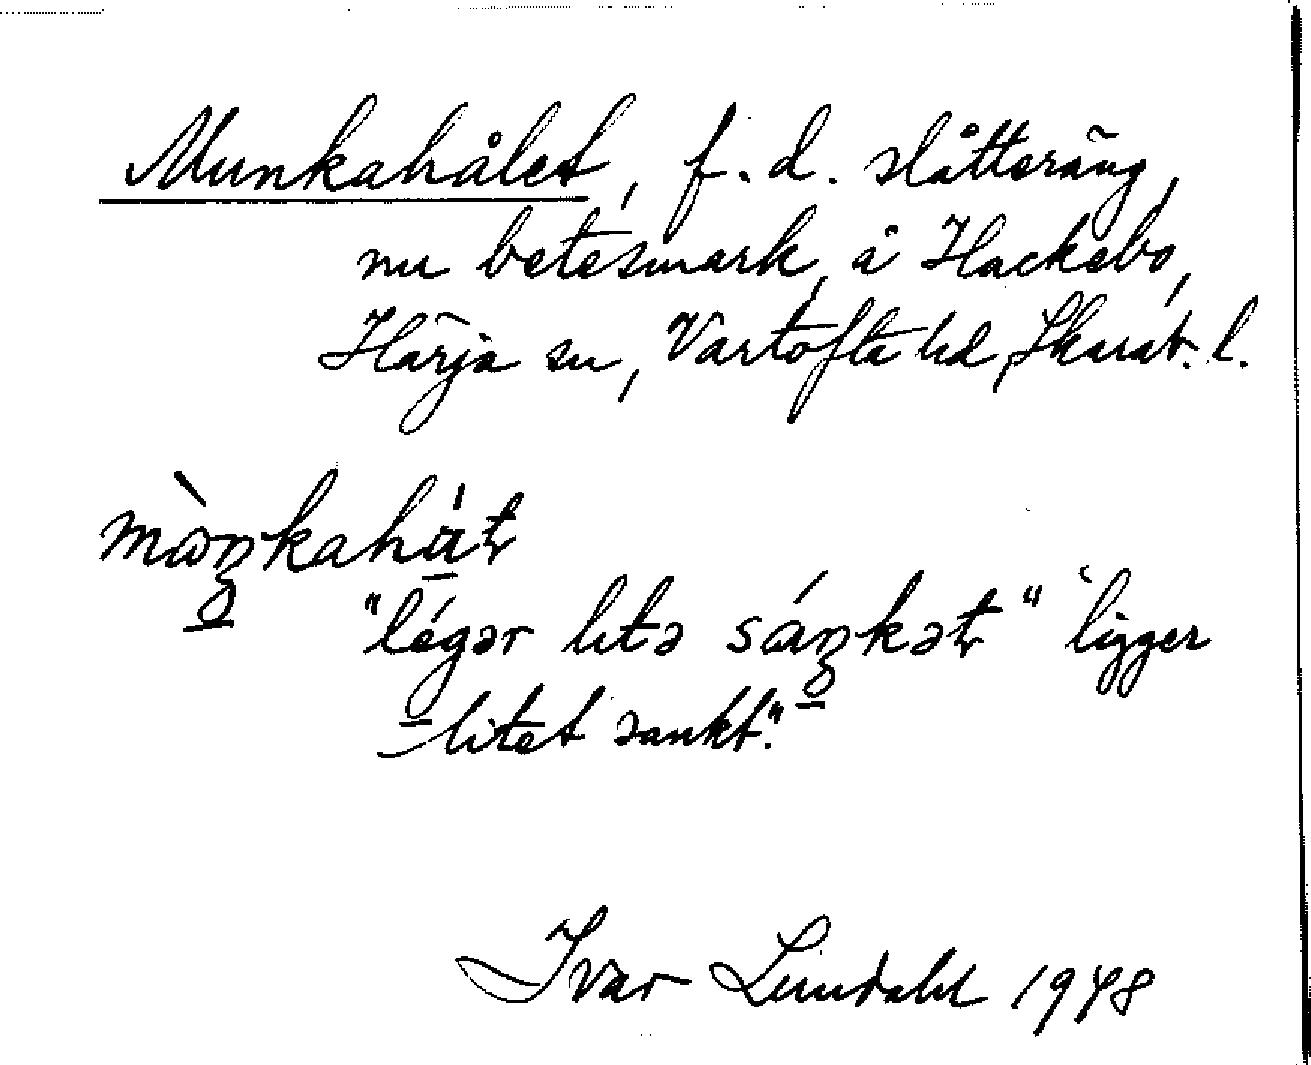 Munkahålet, f.d. slåtteräng,
nu betesmark, å Hackebo,
Härja sn, Vartofta hd, Skarab. l.
"légər litə sáŋkət" "ligger
litet sankt."
Ivar Lundahl 1948